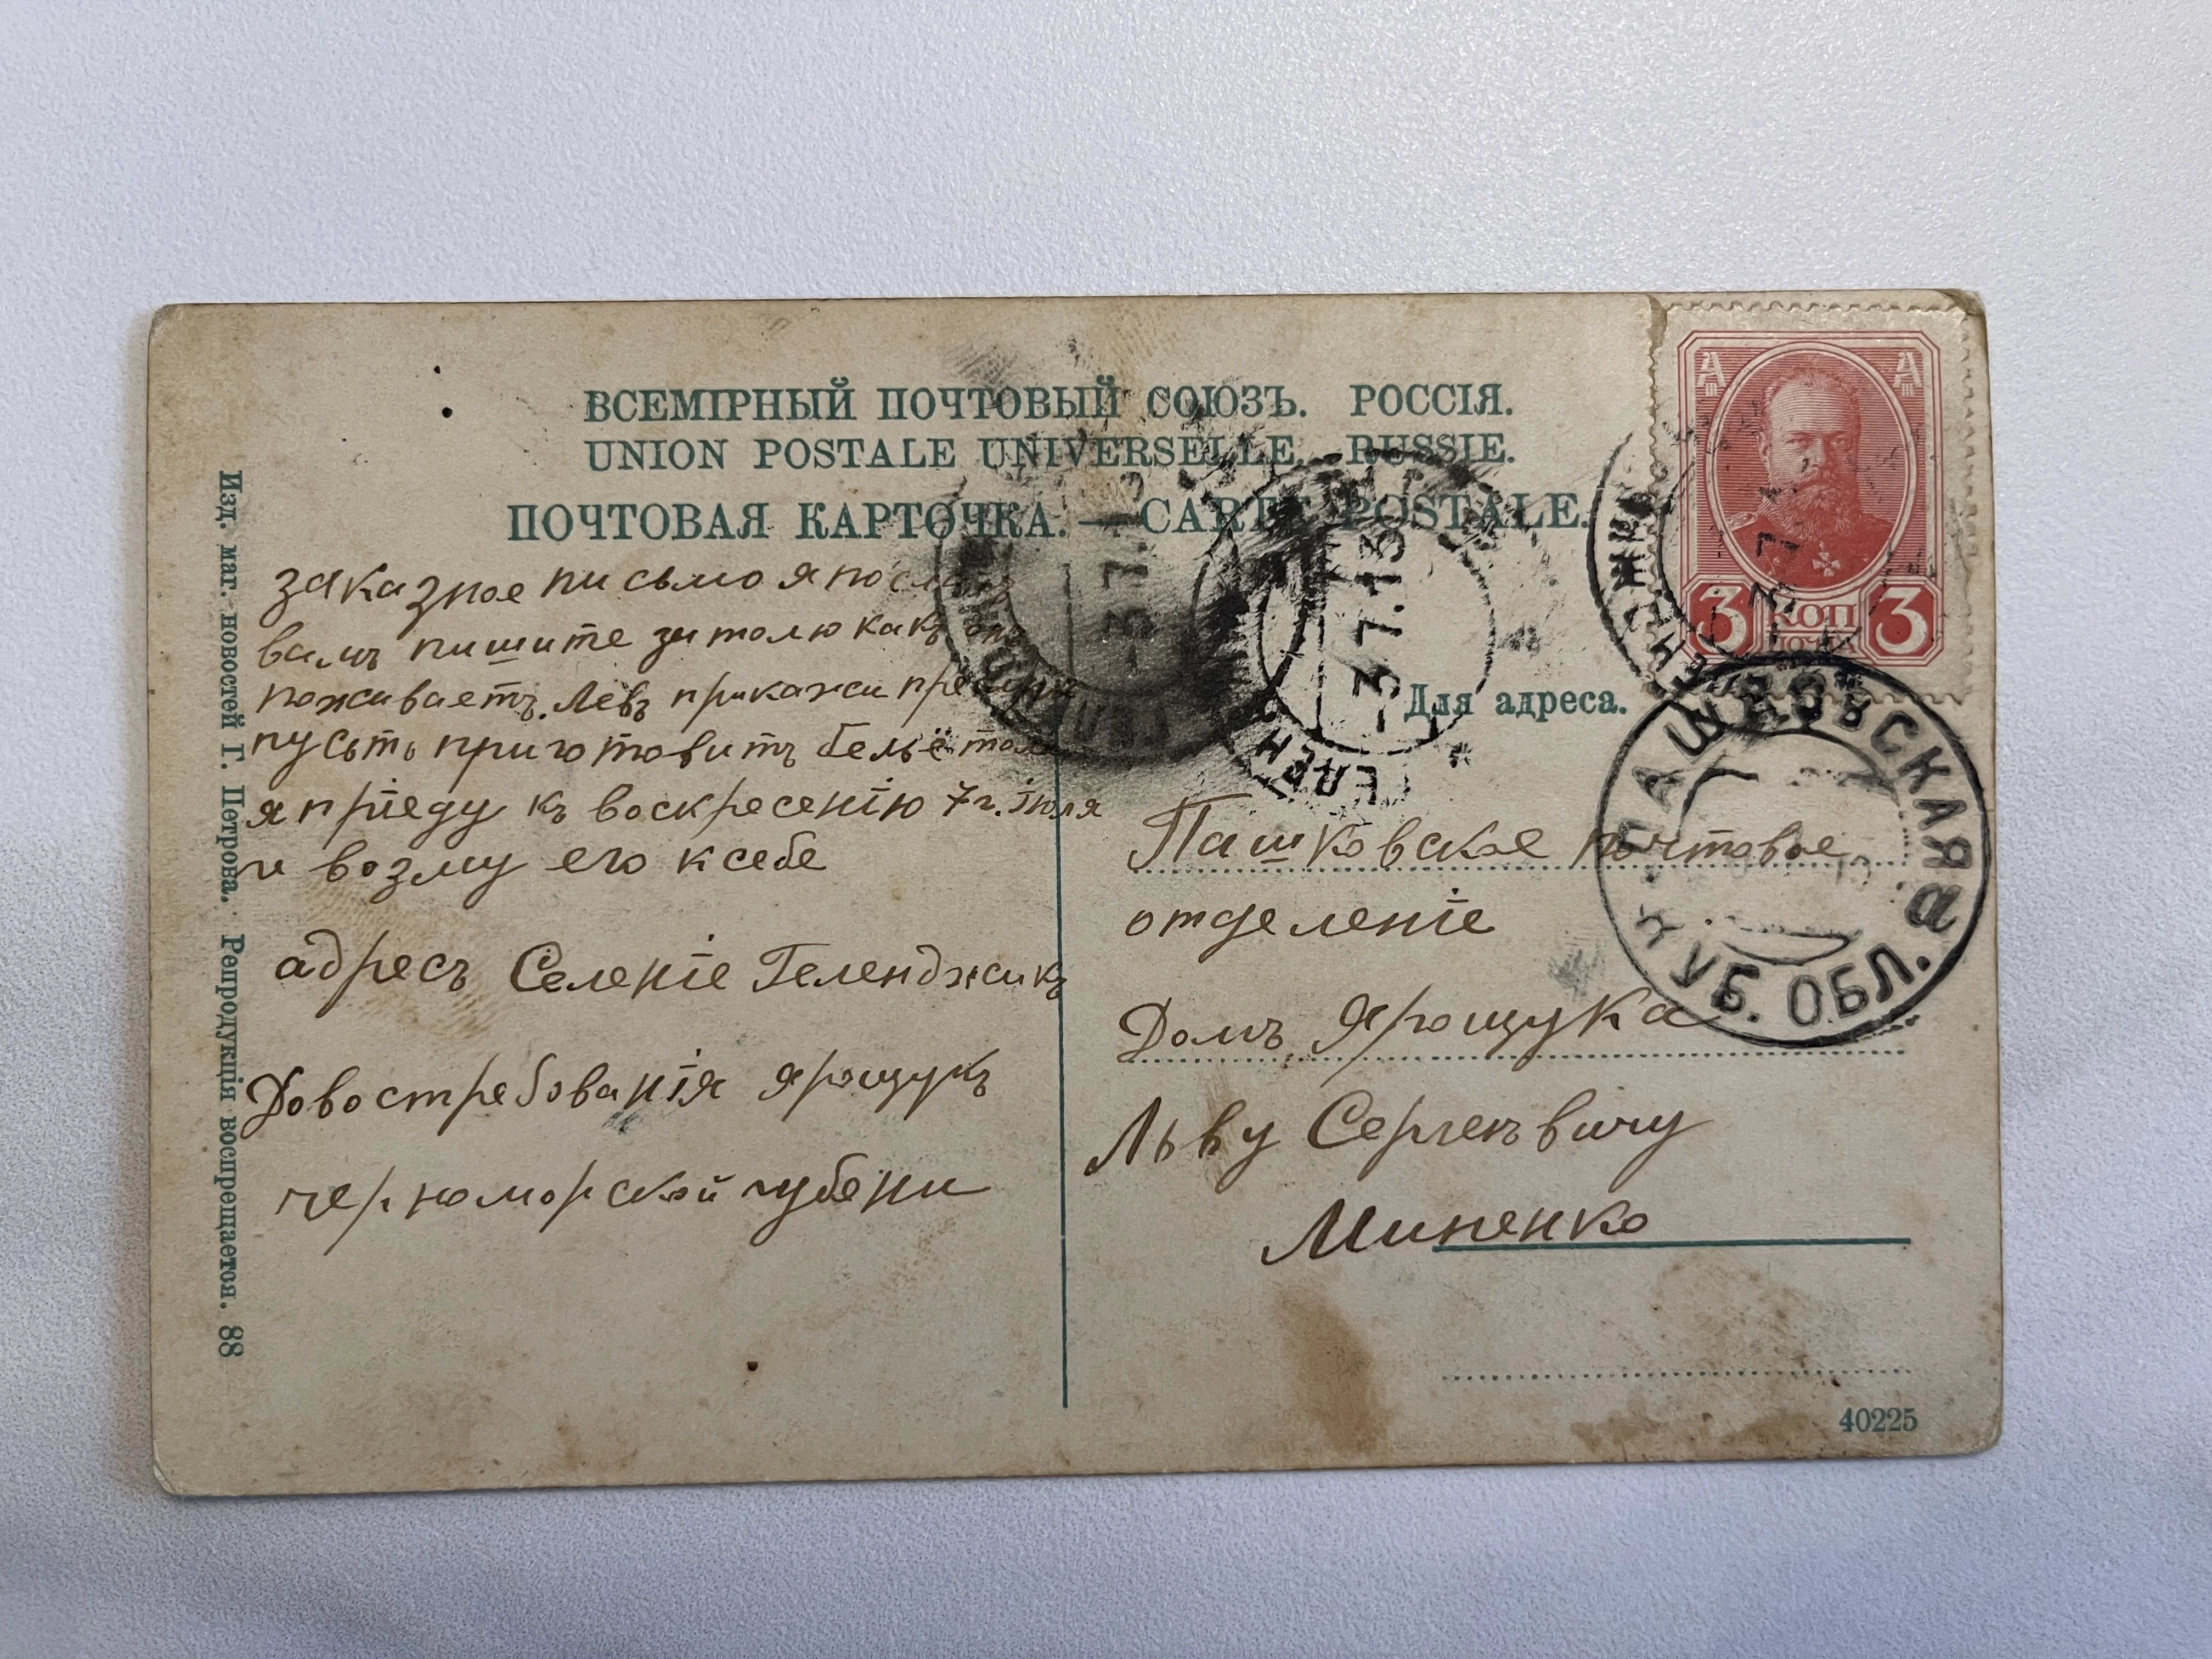 ВСЕМІРНЫЙ ПОЧТОВЫЙ СОЮЗЪ. РОССІЯ.
UNION POSTALE UNIVERSELLE. RUSSIE.
ПОЧТОВАЯ КАРТОЧКА. — CARTE POSTALE.
заказное письмо я послалъ
вамъ пишите за толю какъ онъ
поживаетъ. Левъ прикажи
пусьть приготовитъ бельё толи
я пріеду къ воскресенію 7г. Іюля
и возму его к себе
адресъ Селеніе Геленджикъ
Довостребованія Ярощукъ
черноморской губени
А III А III
3 КОП 3
ПОЧТА
-3.7.13
-3.7.13
ГЕЛЕНДЖИК
ПАШКОВСКАЯ
КУБ. ОБЛ.
Для адреса.
Пашковское почтовое
отделеніе
Домъ Ярощука
Льву Сергеевичу
Миненко
40225
Изд. маг. новостей Г. Петрова. Репродукція воспрещается. 88